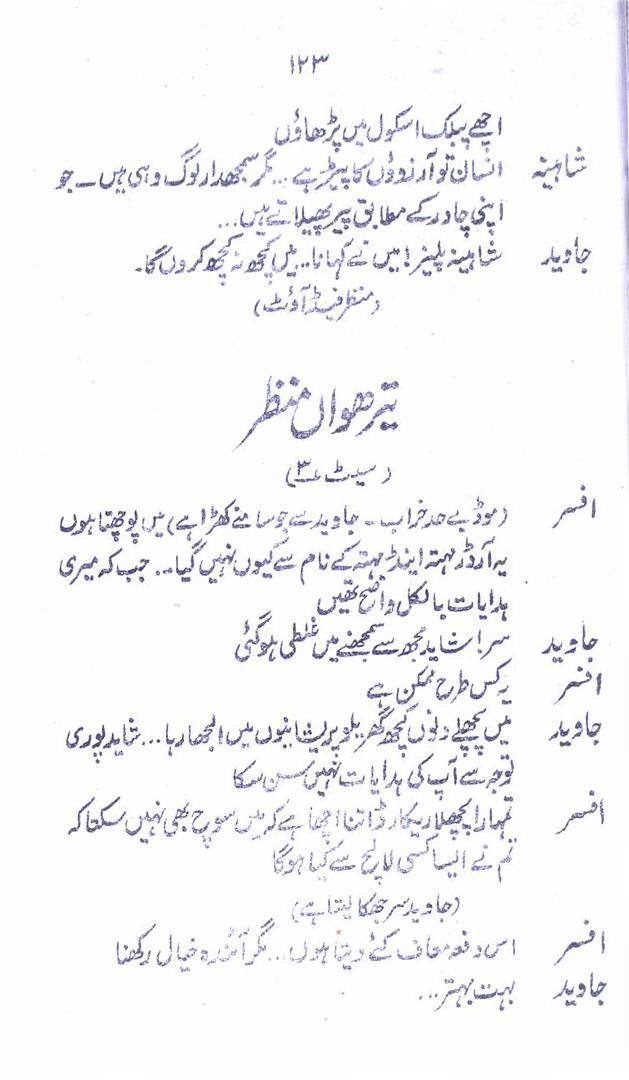 ۱۲۳
اچھے پبلک اسکول میں پڑھاؤں
شاہینہ انسان تو آرزوؤں کا پیڑ ہے ... مگر سمجھدار لوگ وہی ہیں ۔ جو
اپنی چادر کے مطابق پیر پھیلاتے ہیں ...
جاوید شاہینہ پلیز! میں نے کہا نا.. میں کچھ نہ کچھ کروں گا۔
(منظر فیڈ آؤٹ)
تیرھواں منظر
(سیٹ ۳)
افسر (موڈ بے حد خراب ۔ جاوید سے جو سامنے کھڑا ہے) میں پوچھتا ہوں
یہ آرڈر مہتہ اینڈ مہتہ کے نام سے کیوں نہیں گیا... جب کہ میری
ہدایات بالکل واضح تھیں
جاوید سر! شاید مجھ سے سمجھنے میں غلطی ہو گئی
افسر یہ کس طرح ممکن ہے
جاوید میں پچھلے دنوں کچھ گھریلو پریشانیوں میں الجھا رہا... شاید پوری
توجہ سے آپ کی ہدایات نہیں سن سکا
افسر تمہارا پچھلا ریکارڈ اتنا اچھا ہے کہ میں سوچ بھی نہیں سکتا کہ
تم نے ایسا کسی لالچ سے کیا ہوگا
(جاوید سر جھکا لیتا ہے)
افسر اس دفعہ معاف کئے دیتا ہوں... مگر آئندہ خیال رکھنا
جاوید بہت بہتر...